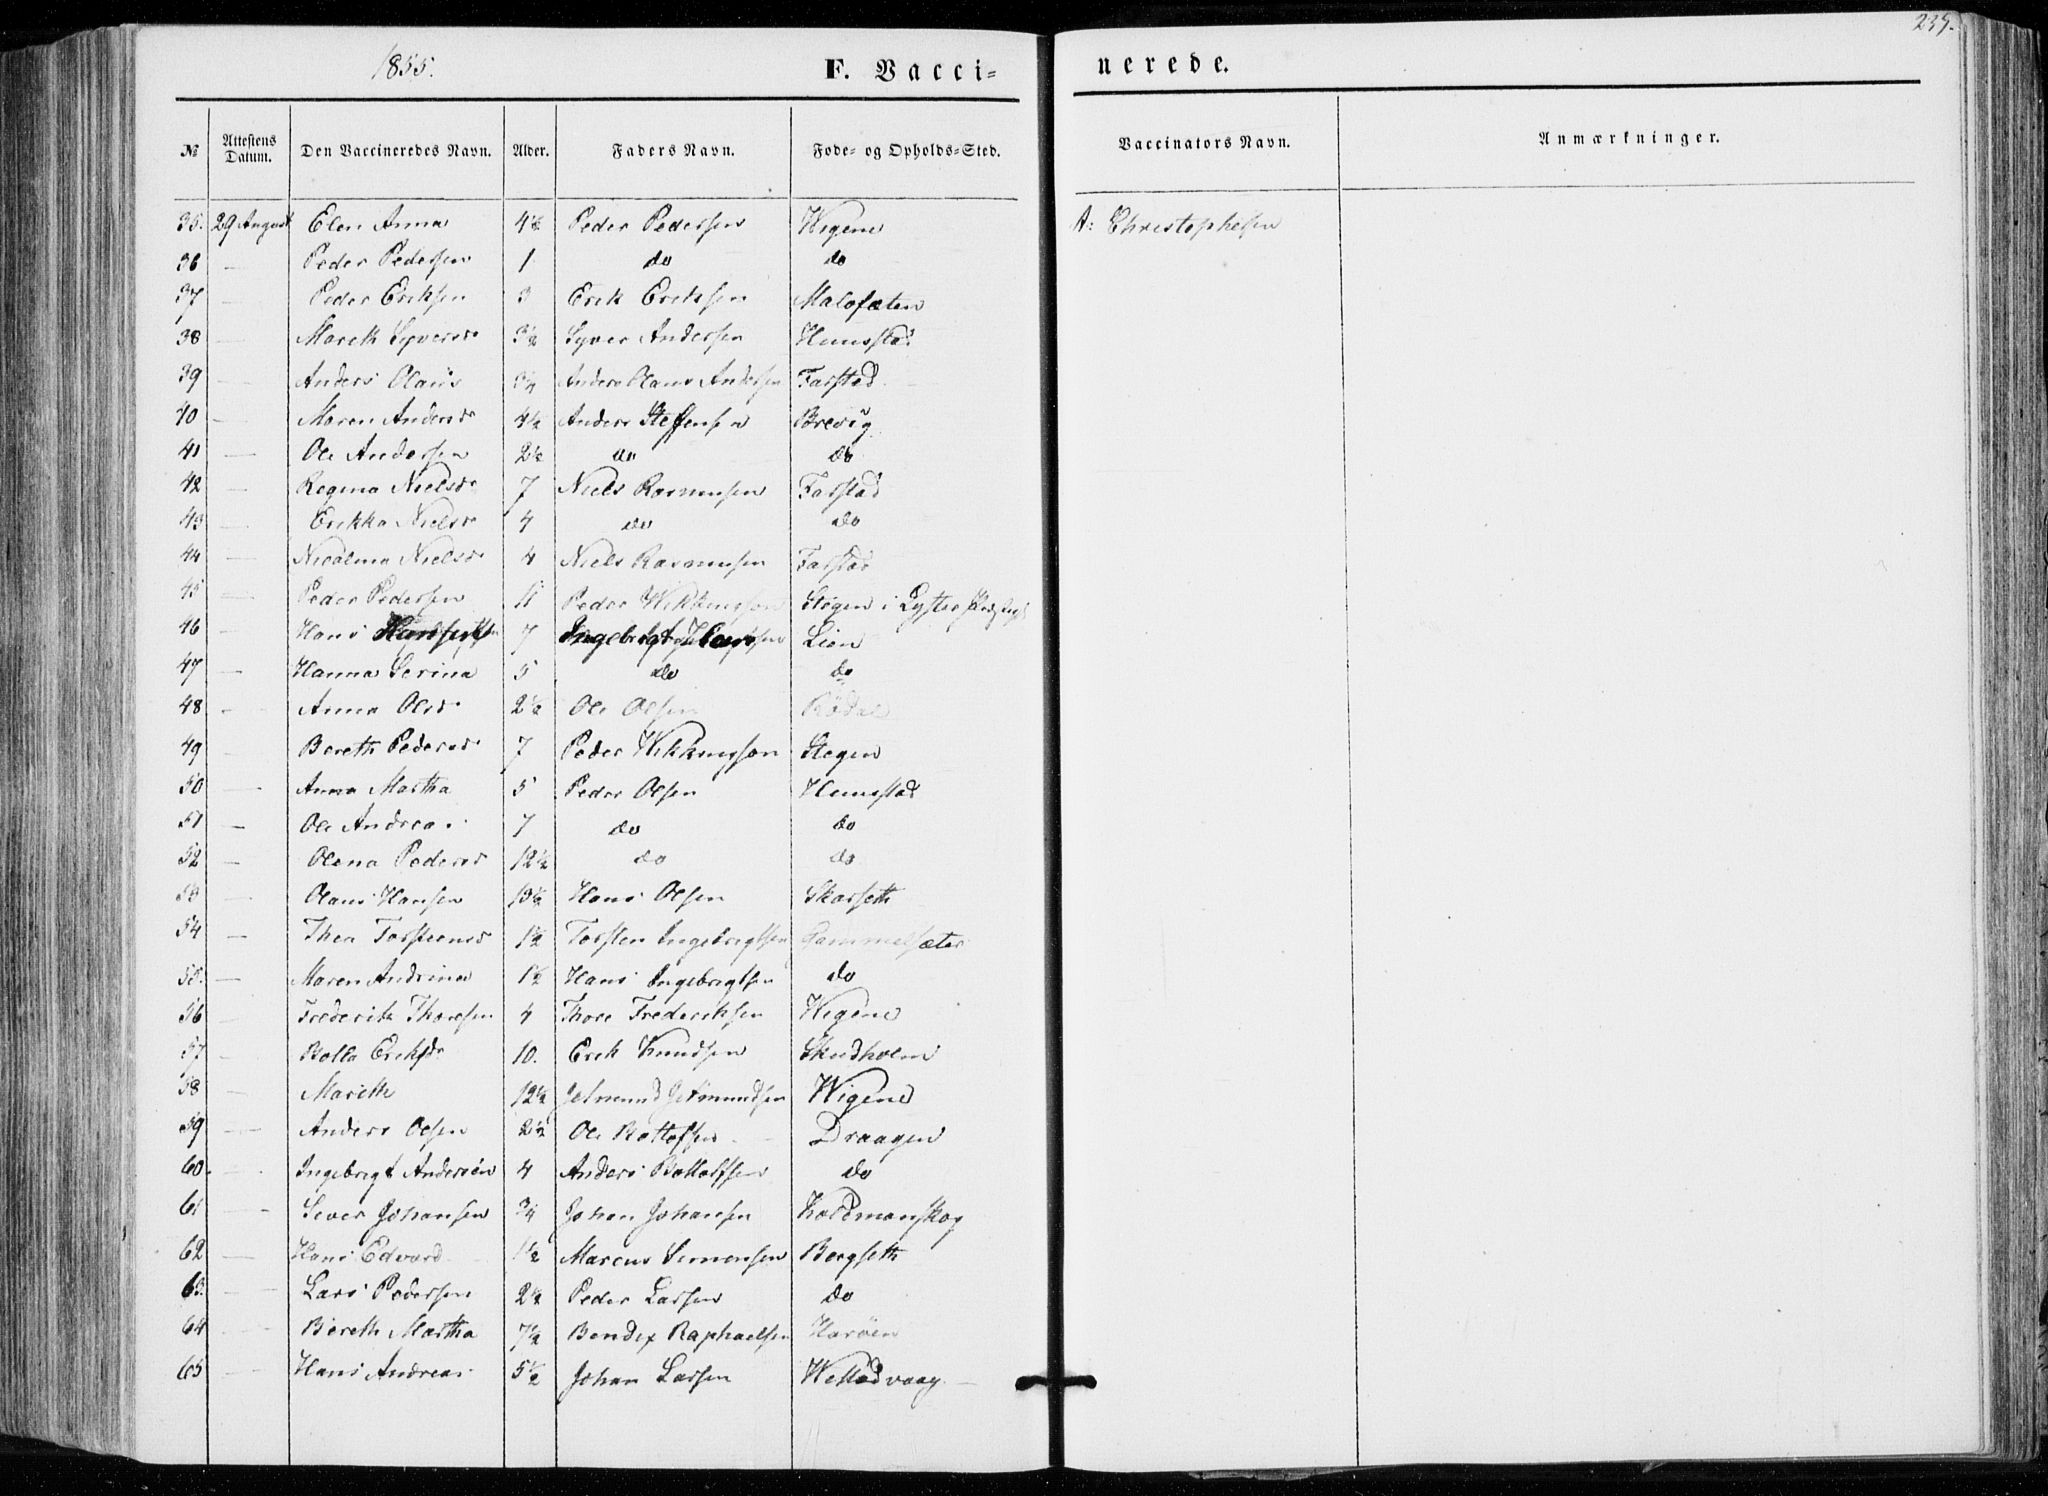 1855.
F. Vacci-
nerede.
239.
№ Attestens Datum. Den Vaccineredes Navn. Alder. Faders Navn. Føde- og Opholds-Sted. Vaccinators Navn. Anmærkninger.
35. 29 August Elen Anna 4½ Peder Pedersen Wigene A: Christophersen
36 — Peder Pedersen 1 do do
37 — Peder Eriksen 3 Erik Eriksen Malefæten
38 — Mareth Syversd 3½ Syver Andersen Hunsstad
39 — Anders Olaus 3/4 Anders Olaus Andersen Farstad
40 — Maren Andersd 4½ Anders Steffensen Brevig
41 — Ole Andersen 2½ do do
42 — Regina Nielsd 7 Niels Rasmusen Farstad
43 — Erikka Nielsd 4 do do
44 — Nicolina Nielsd 4 Niels Rasmusen Farstad
45 — Peder Pedersen 11 Peder Wikkingson Stegen i
46 — Hans 7 Ingebrigt Lien
47 — Hanna Serina 5 do do
48 — Anna Olsd 2½ Ole Olsen Rødal
49 — Bereth Pedersd 7 Peder Wikkingson Stegen
50 — Anna Martha 5 Peder Olsen Hunsstad
51 — Ole Andreas 7 do do
52 — Olena Pedersd 12½ do do
53 — Olaus Hansen 13½ Hans Olsen Skarseth
54 — Thea Torsteensd 1½ Torsten Ingebrigtsen Gammelsæter
55. — Maren Andrina 1½ Hans Ingebrigtsen do
56 — Frederik Thoresen 4 Thore Frederiksen Wigene
57 — Bolla Eriksd 10. Erik Knudsen Skudholm
58 — Mareth 12½ Jetmund Jetmundsen Wigene
59 — Anders Olsen 2½ Ole Bottolfsen Draagen
60. — Ingebrigt Andersen 4 Anders Bottolfsen do
61 — Siver Johansen 3/4 Johan Johansen Holdmanskog
62 — Hans Edvard 1½ Marcus Simonsen Bergseth
63. — Lars Pedersen 2½ Peder Larsen do
64 — Bereth Martha 7½ Bendix Raphaelsen Harøen
65 — Hans Andreas 5½ Johan Larsen Wettadvaag